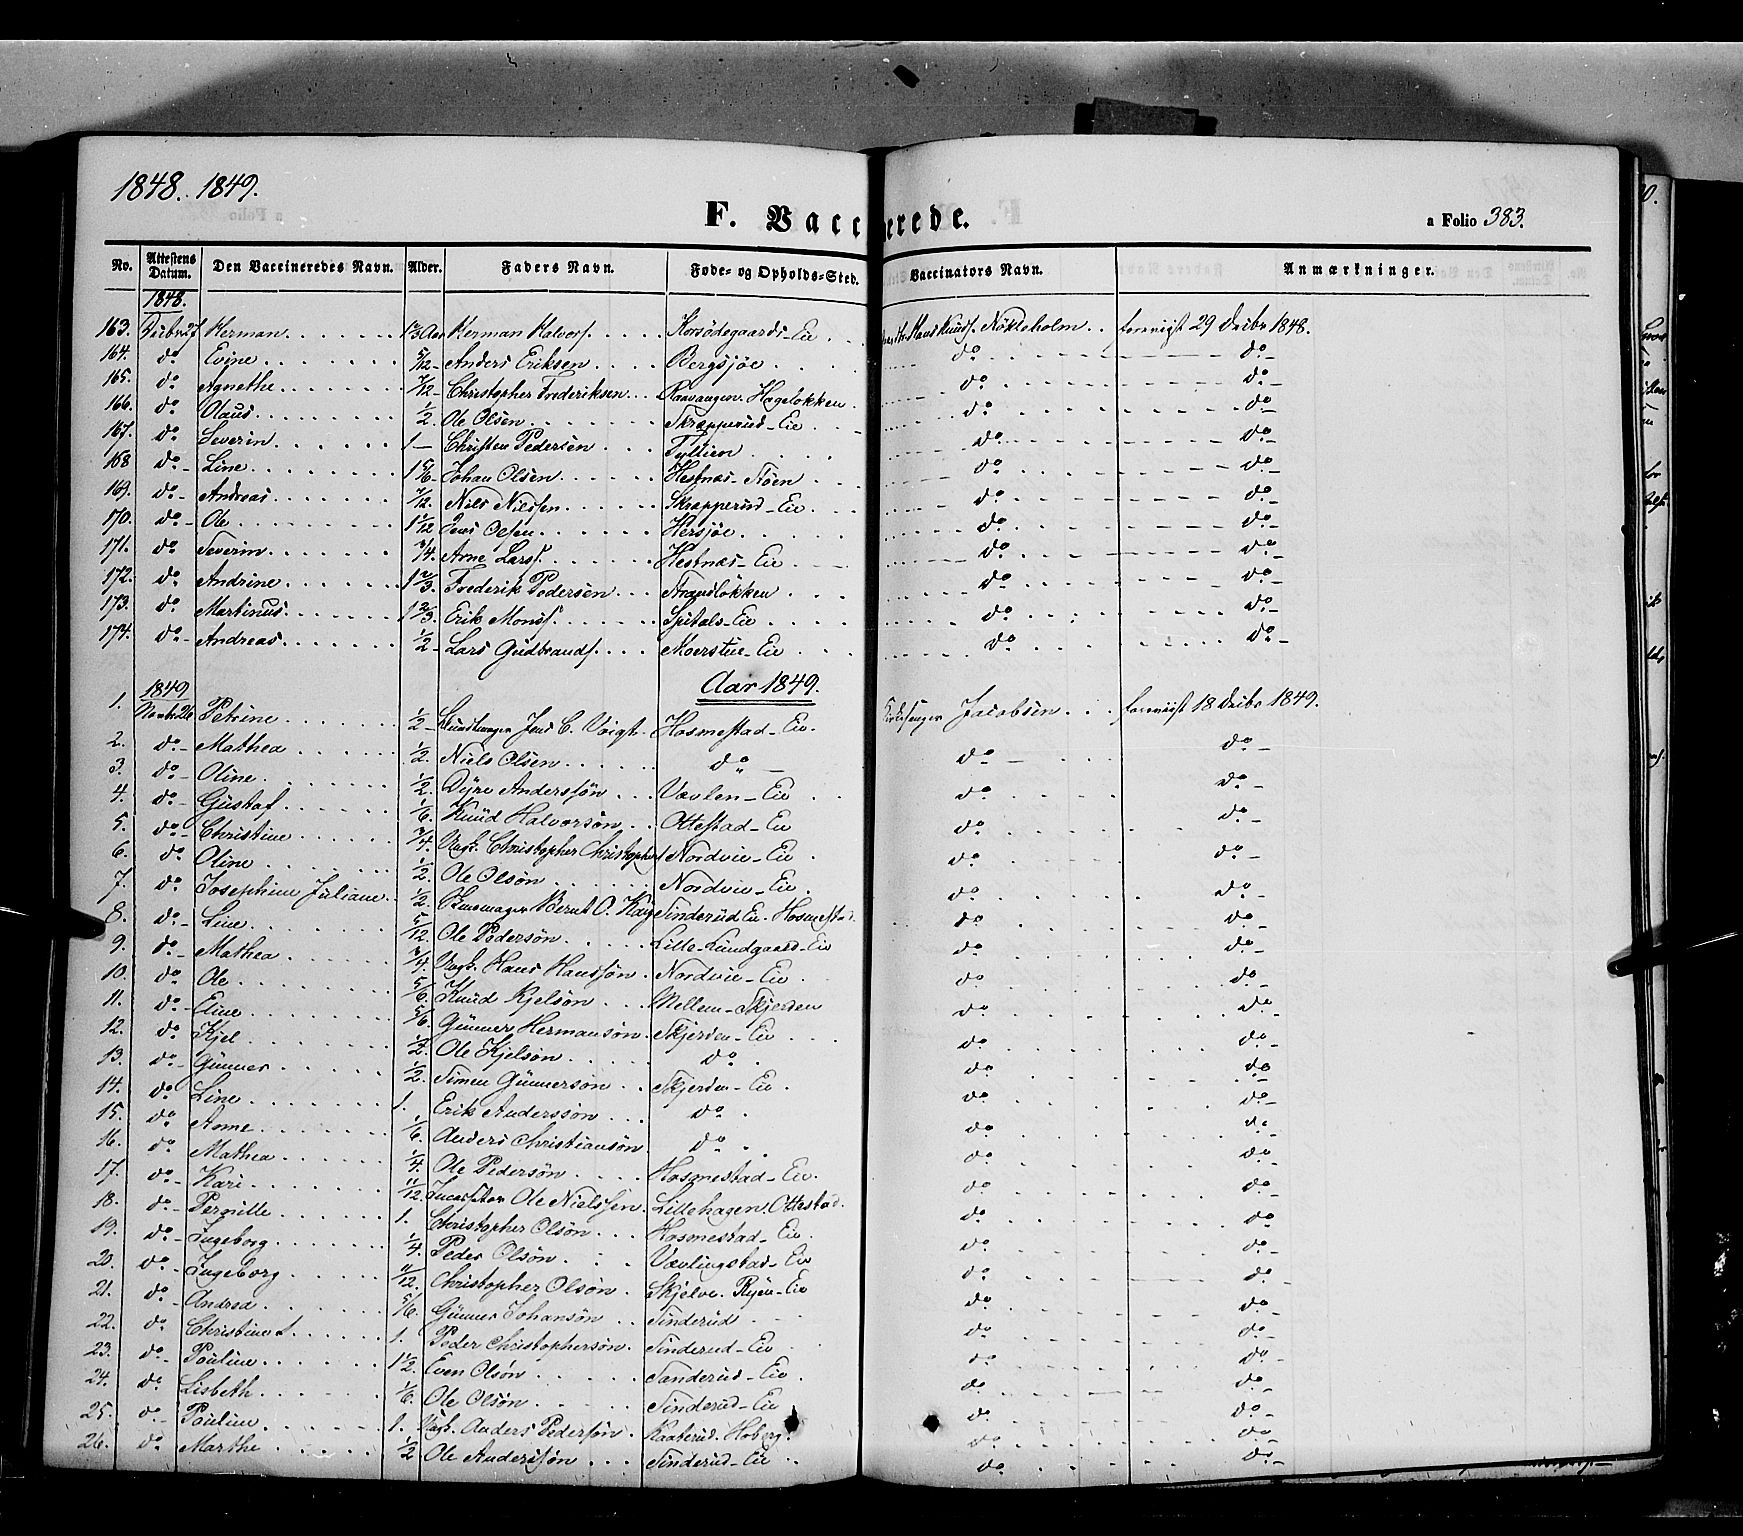 1848. 1849.
F. Vaccinerede.
a Folio 383.
No. Attestens Datum. Den Vaccineredes Navn. Alder. Faders Navn. Føde- og Opholds-Sted. Vaccinators Navn. Anmærkninger.
1848.
163. Decbr 27 Herman 1 2/3 Aar Herman Halvors. Korsødegaards-Eie Hans Knuds. Nøkleholm forevist 29 Decbr 1848.
164. do Evine 5/12 Anders Eriksen Bergsjøe do do
165. do Agnethe 7/12 Christopher Frederiksen Raavangen Hageløkken do do
166. do Olaus 1/2 Ole Olsen Skrapperud-Eie do do
167. do Severin 1 Christen Pedersen Tyllien do do
168 do Line 1 5/6 Johan Olsen Hestnæs-Støen do do
169. do Andreas 7/12 Nils Nilssen Skrapperud-Eie do do
170. do Ole 1 1/12 Jens Olsen Hersjøe do do
171. do Severin 3/4 Arne Lars. Hestnæs-Eie do do
172. do Andrine 1 2/3 Frederik Pedersen Strandløkken do do
173. do Martinus 1 2/3 Erik Mons. Spitals-Eie do do
174. do Andreas 1/2 Lars Gudbrands. Moerstue-Eie do do
1849 Aar 1849.
1. Novbr 26 Petrine 1/2 Jens C. Voigt Hosmestad-Eie Kirkesanger Jacobsen forevist 18 Decbr 1849.
2. do Mathea 1/2 Niels Olsen do do do
3. do Oline 1/2 Dyre Anderssøn Vævlen-Eie do do
4. do Gustaf 1/6 Knud Halvorsøn Ottestad-Eie do do
5. do Christine 7/4 Ungk. Christopher Christophers. Nordvie-Eie do do
6. do Oline 1/2 Ole Olsøn Nordvie-Eie do do
7. do Josephine Juliane 1/2 Bernt O. Sinderud Eie. Hosmestad do do
8. do Line 5/12 Ole Pedersøn Lille-Lundgaard-Eie do do
9. do Mathea 3/4 Ungk. Hans Hanssøn Nordvie-Eie do do
10. do Ole 5/6 Knud Kjelsøn Mellem-Skjerden do do
11. do Eline 5/6 Gunner Hermansøn Skjerden-Eie do do
12. do Kjel 1/2 Ole Kjelsøn do do do
13. do Gunner 1/2 Simen Gunnersøn Skjerden-Eie do do
14. do Line 1. Erik Anderssøn do do do
15. do Arne 1/6 Anders Christiansøn do do do
16. do Mathea 1/4 Ole Pedersøn Hosmestad-Eie do do
17. do Kari 11/12 Ole Nielssen Lillehagen Ottestad do do
18. do Pernille 1. Christopher Olsøn Hosmestad-Eie do do
19. do Ingeborg 1/4 Peder Olsøn Vævlingstad-Eie do do
20. do Ingeborg 11/12 Christopher Olsøn Skjelve. Ryen-Eie do do
21. do Andrea 5/6 Gunner Johansøn Sinderud do do
22. do Christine 1. Peder Christophersøn Sinderud-Eie do do
23. do Pauline 1 1/2 Even Olsøn Sanderud-Eie do do
24. do Lisbeth 1/6 Ole Olsøn Sinderud-Eie do do
25. do Pauline 1. Ungk. Anders Pedersøn Kaaterud. Hoberg. do do
26. do Marthe 1/2 Ole Anderssøn Sinderud-Eie do do